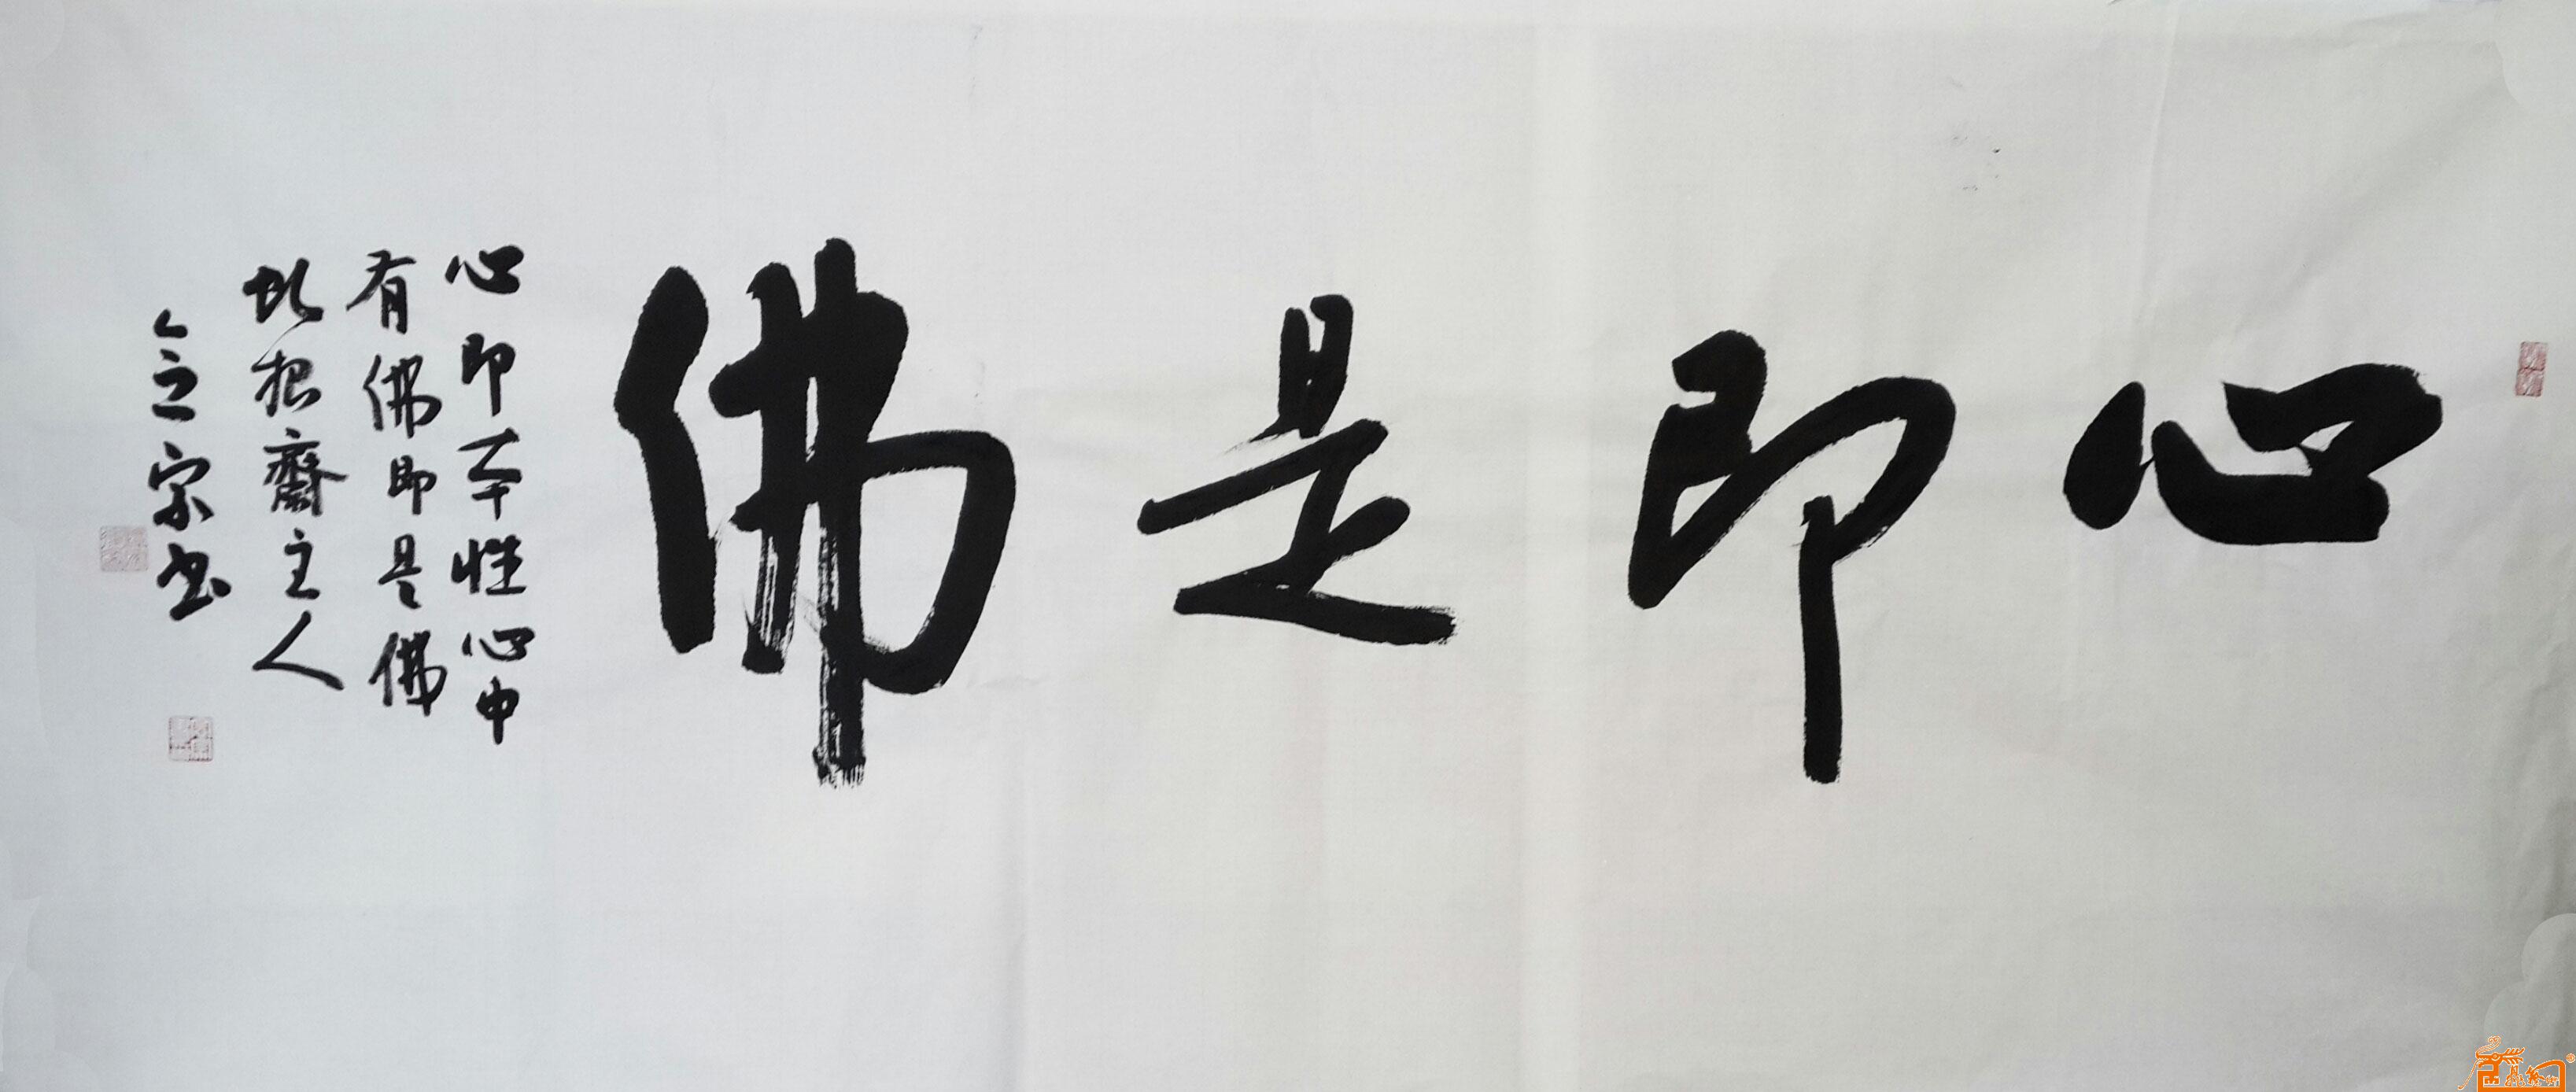 心即是佛
心即本性心中
有佛即是佛
齋主人
宗书